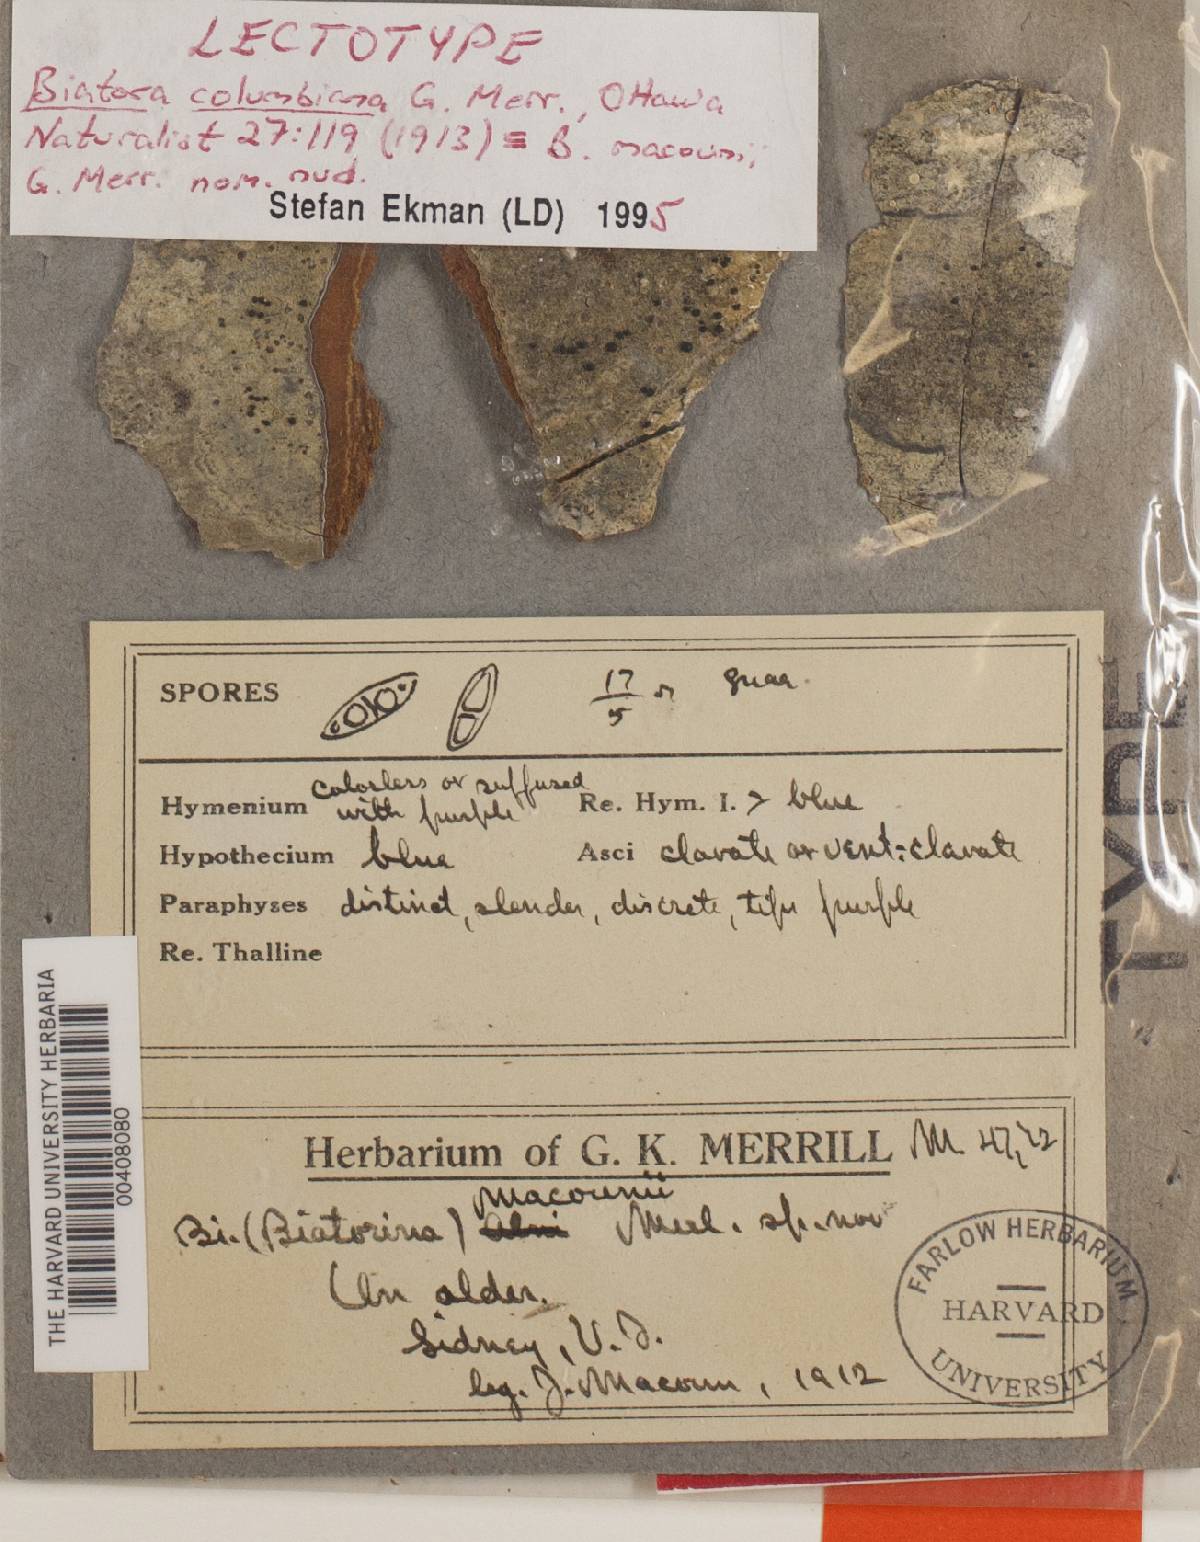 LECTOTYPE
Biatora columbiana G. Merr., Ottawa
Naturalist 27:119 (1913) ≡ B. macounii
G. Merr. nom. nud.
Stefan Ekman (LD) 1995
SPORES 17/5
Hymenium colorless or suffused with purple Re. Hym. I. > blue
Hypothecium blue Asci clavate or vent:clavate
Paraphyses distinct, slender, discrete, tips purple
Re. Thalline
TYPE
THE HARVARD UNIVERSITY HERBARIA
00408080
Herbarium of G. K. MERRILL M
Macounii
Bi. (Biatorina) Alni Merl. sp. nov
On alder.
Sidney, V. I.
leg. J. Macoun, 1912
FARLOW HERBARIUM
HARVARD
UNIVERSITY